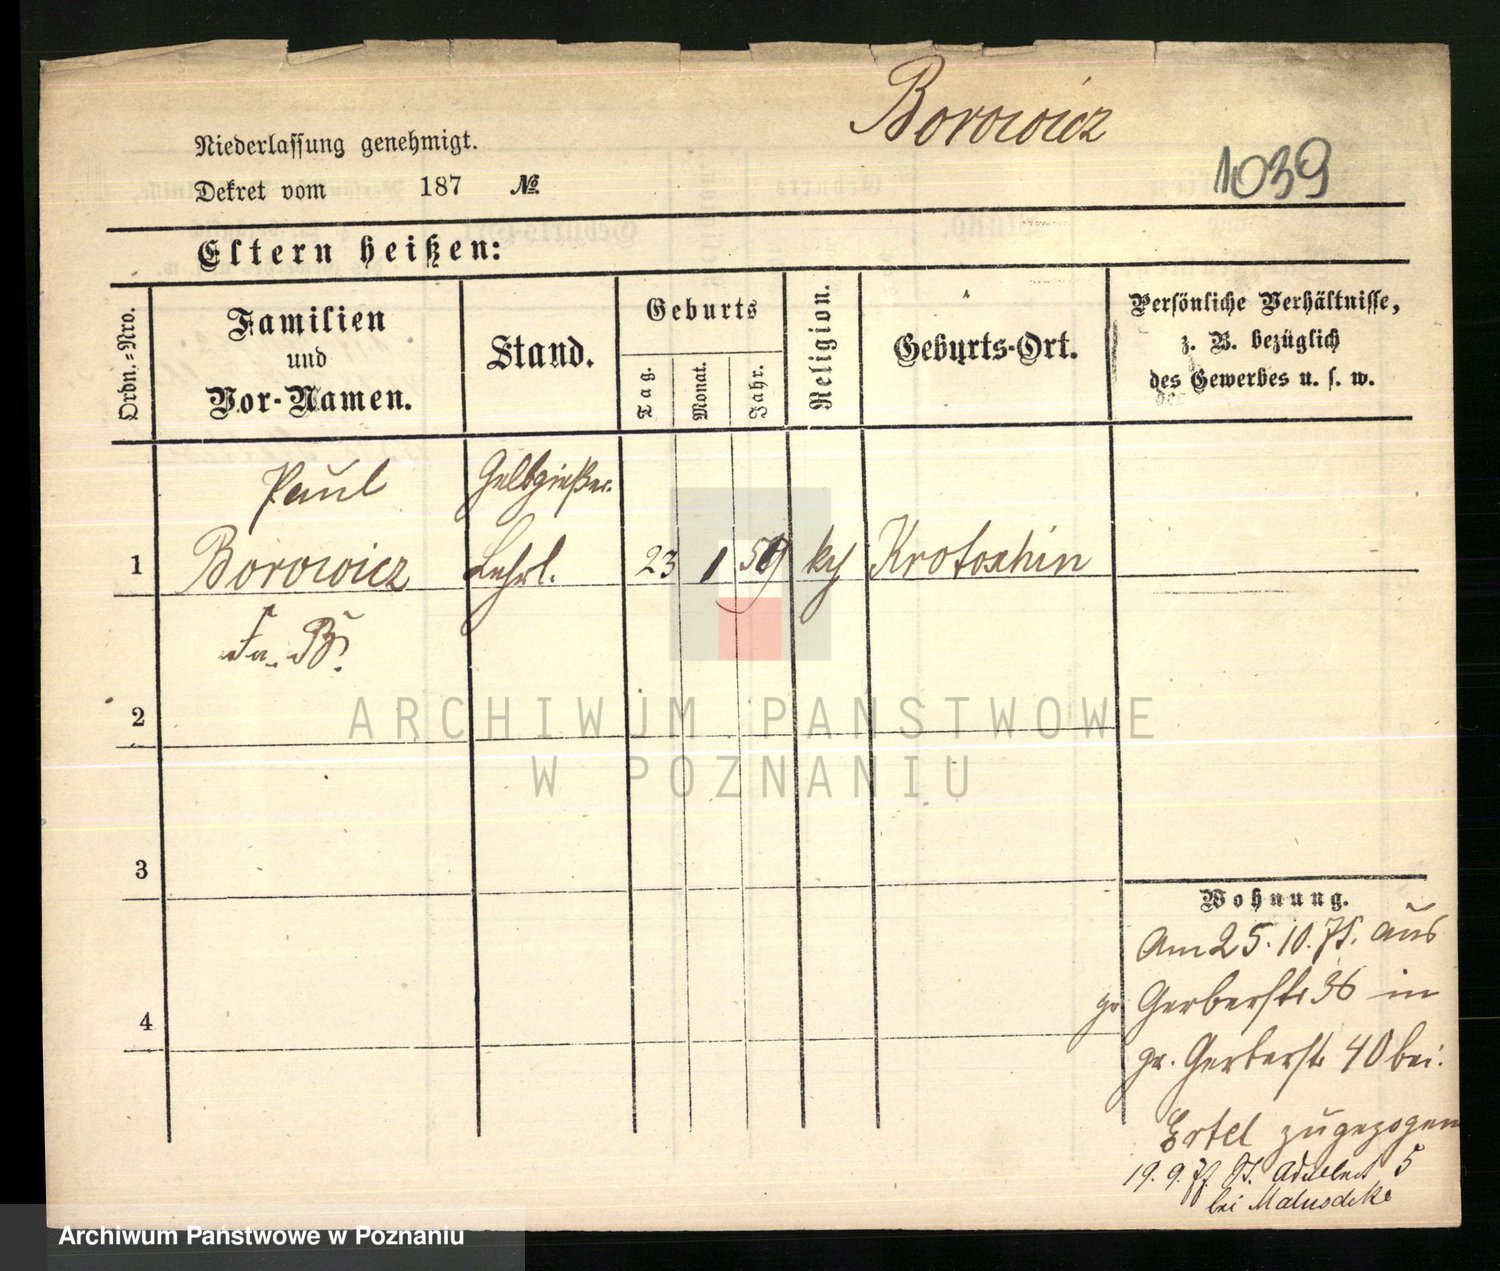 Borowicz
1039
Niederlassung genehmigt.
Dekret vom 187 №.
Eltern heißen:
Ordn.=Nro.
Familien
und
Vor-Namen.
Stand.
Geburts
Tag.
Monat.
Jahr.
Religion.
Geburts-Ort.
Persönliche Verhältnisse,
z. B. bezüglich
des Gewerbes u. s. w.
Paul Gelbgießer
1 Borowicz Lehrl. 23 1 59 Krotoshin
2
ARCHIWUM PAŃSTWOWE
W POZNANIU
3
4
Wohnung.
Am 25. 10. 75. aus
gr Gerberstr 36 in
gr. Gerberstr 40 bei.
Ertel zugezogen
19. 9. 77 St. Adalbert 5
bei
Archiwum Państwowe w Poznaniu